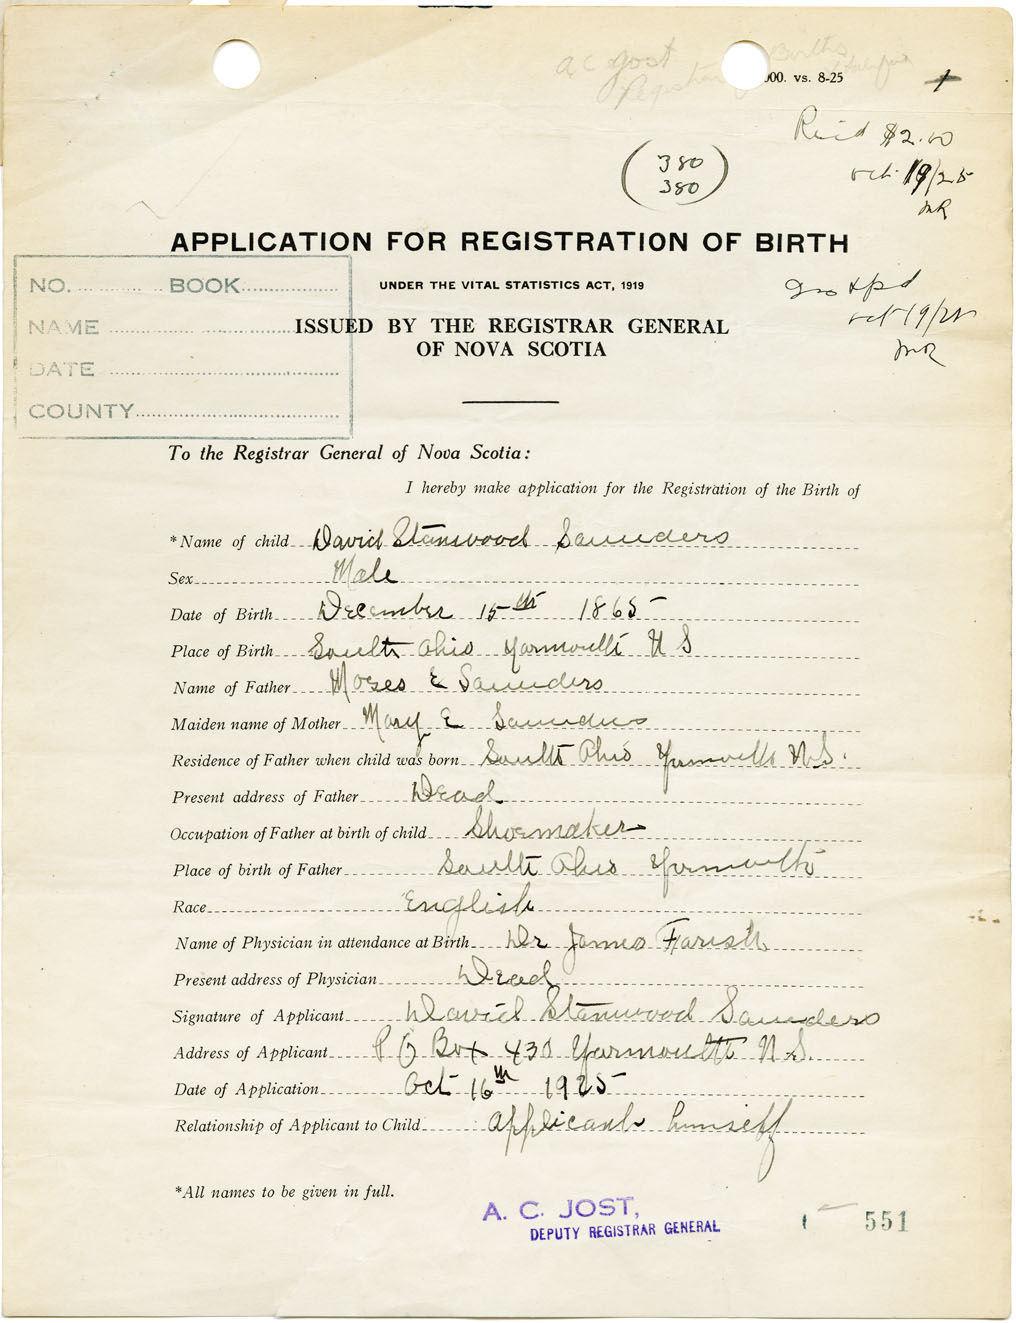 A C Jost
Births
Registrar
000. vs. 8-25
1
$2.00
Oct 19/25
MR
(380
380)
APPLICATION FOR REGISTRATION OF BIRTH
UNDER THE VITAL STATISTICS ACT, 1919
ISSUED BY THE REGISTRAR GENERAL
OF NOVA SCOTIA
NO. BOOK
NAME
DATE
COUNTY
Oct 19/25
MR
To the Registrar General of Nova Scotia:
I hereby make application for the Registration of the Birth of
*Name of child David Stanwood Saunders
Sex Male
Date of Birth December 15th 1865
Place of Birth South Ohio Yarmouth N S
Name of Father Moses E Saunders
Maiden name of Mother Mary E Saunders
Residence of Father when child was born South Ohio Yarmouth N.S.
Present address of Father Dead
Occupation of Father at birth of child Shoemaker
Place of birth of Father South Ohio Yarmouth
Race English
Name of Physician in attendance at Birth Dr James Farish
Present address of Physician Dead
Signature of Applicant David Stanwood Saunders
Address of Applicant P O Box 430 Yarmouth N.S.
Date of Application Oct 16th 1925
Relationship of Applicant to Child applicant himself
*All names to be given in full.
A. C. JOST,
DEPUTY REGISTRAR GENERAL
551